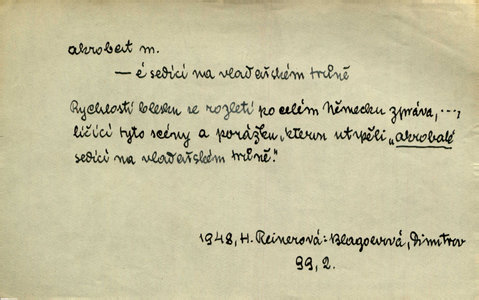 akrobat m.
— é sedící na vladařském trůně
Rychlostí blesku se rozletí po celém Německu zpráva, ...,
líčící tyto scény a porážku, kterou utrpěli „akrobaté
sedící na vladařském trůně."
1948, H. Reinerová: Blagoevová, Dimitrov
99, 2.